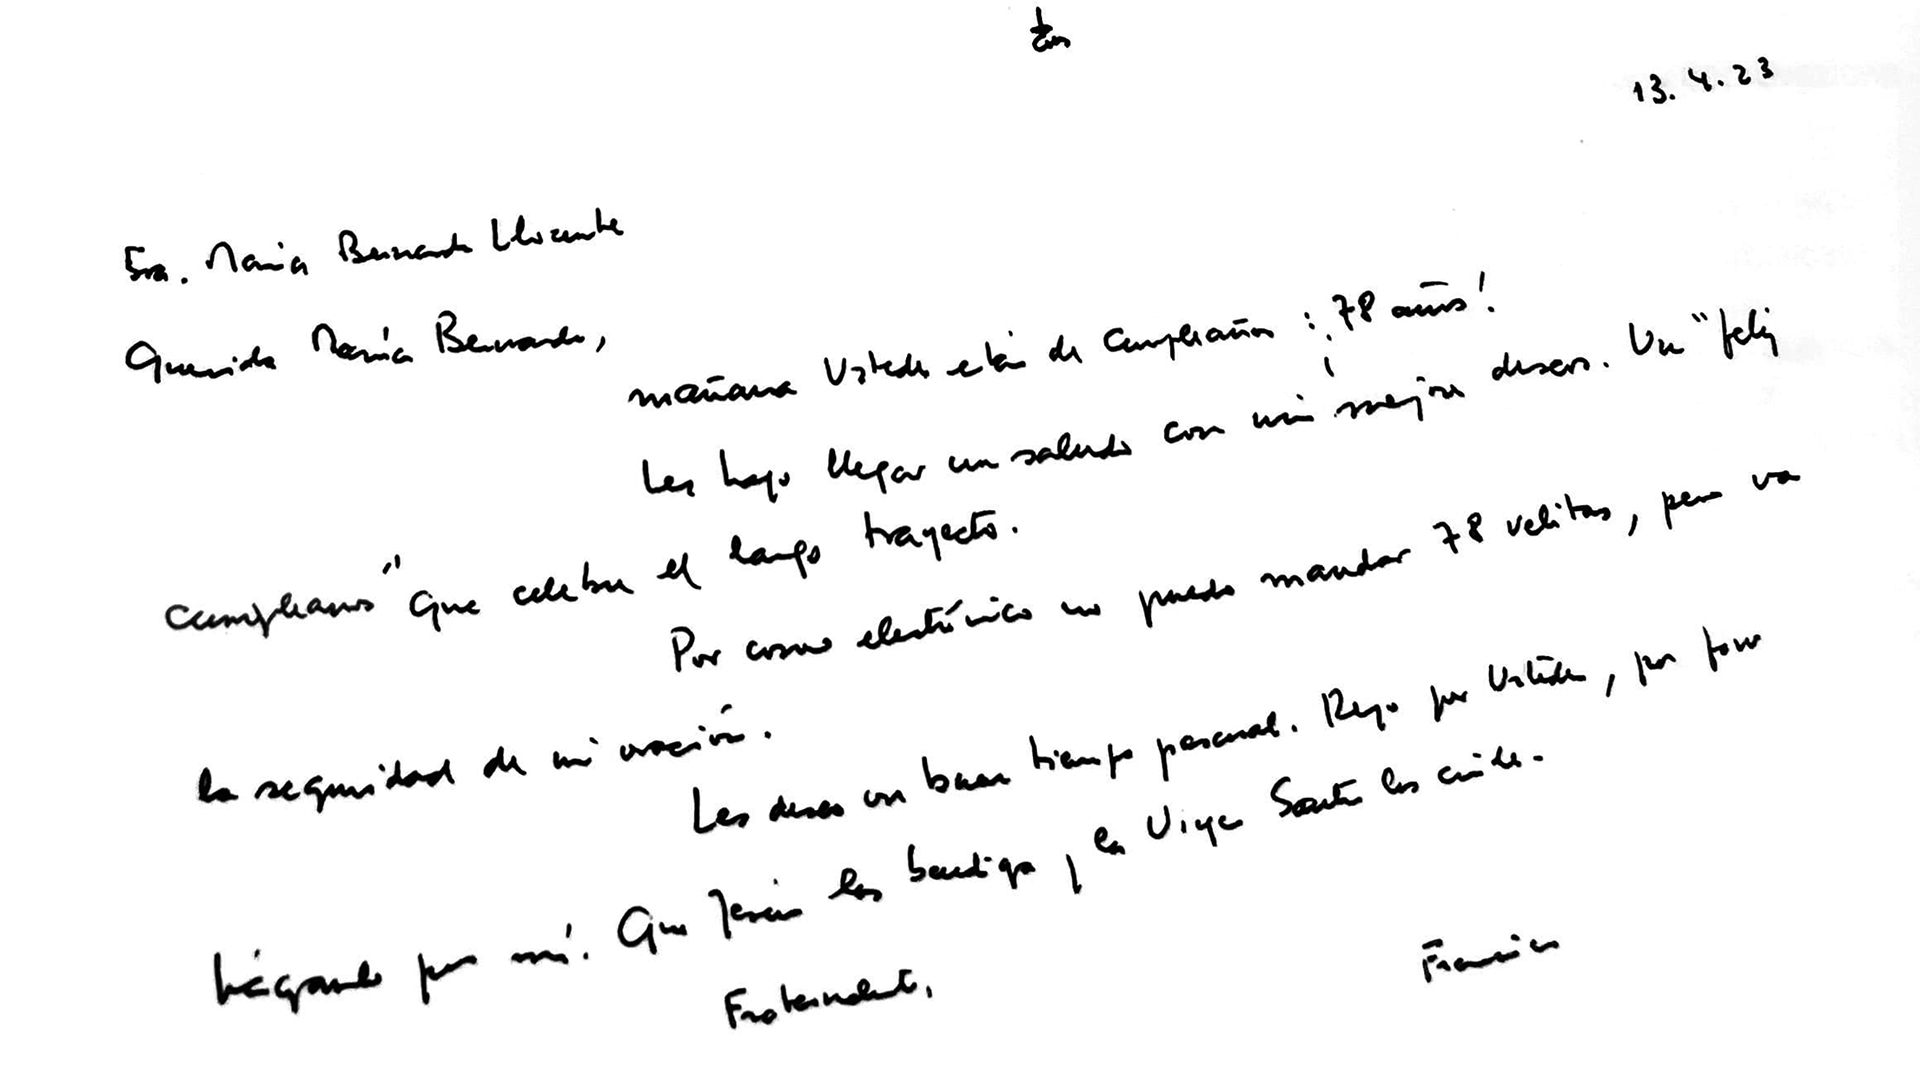 13.4.23
Sra. María Bernarda Llorente
Querida María Bernarda,
mañana Ustedes están de cumpleaños: ¡78 años!
Les hago llegar un saludo con mis mejores deseos. Un "feliz
cumpleaños" que celebra el largo trayecto.
Por correo electrónico no puedo mandar 78 velitas, pero va
la seguridad de mi oración.
Les deseo un buen tiempo pascual. Rezo por Ustedes, por favor
háganlo por mí. Que Jesús los bendiga y la Virgen Santa los cuide.
Fraternalmente,
Francisco